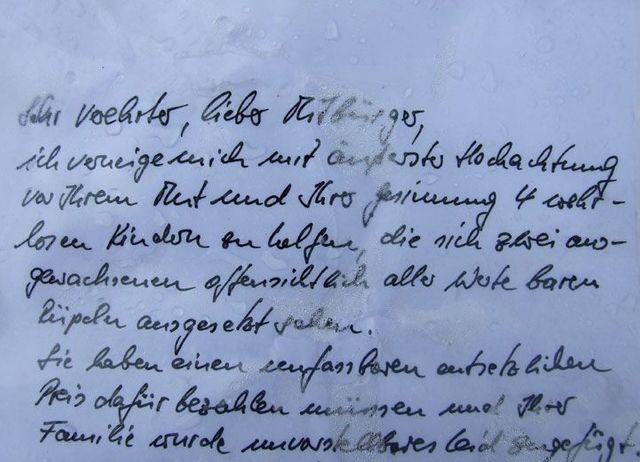 Sehr verehrter, lieber Mitbürger,
ich verneige mich mit äußerster Hochachtung
vor Ihrem Mut und Ihrer Gesinnung 4 wehr-
losen Kindern zu helfen, die sich zwei aus-
gewachsenen offensichtlich aller Werte baren
Rüpeln ausgesetzt sahen.
Sie haben einen unfassbaren entsetzlichen
Preis dafür bezahlen müssen und Ihrer
Familie wurde unvorstellbares Leid zugefügt.